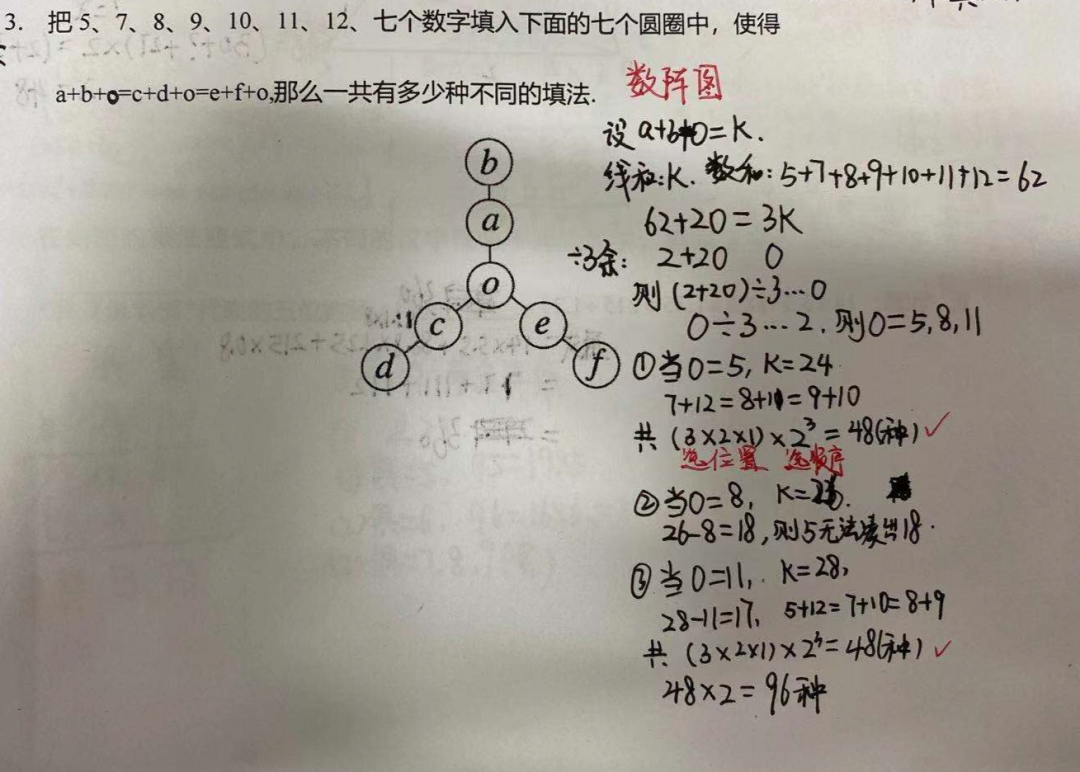 3. 把 5、7、8、9、10、11、12、七个数字填入下面的七个圆圈中，使得
a+b+o=c+d+o=e+f+o,那么一共有多少种不同的填法.
数阵图
设 a+b+o=K.
线和:K. 数和: 5+7+8+9+10+11+12=62
b
a
o
c
e
d
f
62+2o=3K
÷3余: 2+2o 0
则 (2+2o)÷3…0
o÷3…2, 则o=5,8,11
①当o=5, K=24
7+12=8+11=9+10
共 (3×2×1)×2³=48(种)✓
选位置 选顺序
②当o=8, K=26.
26-8=18, 则5无法凑出18.
③当o=11, K=28,
28-11=17, 5+12=7+10=8+9
共 (3×2×1)×2³=48(种)✓
48×2=96种